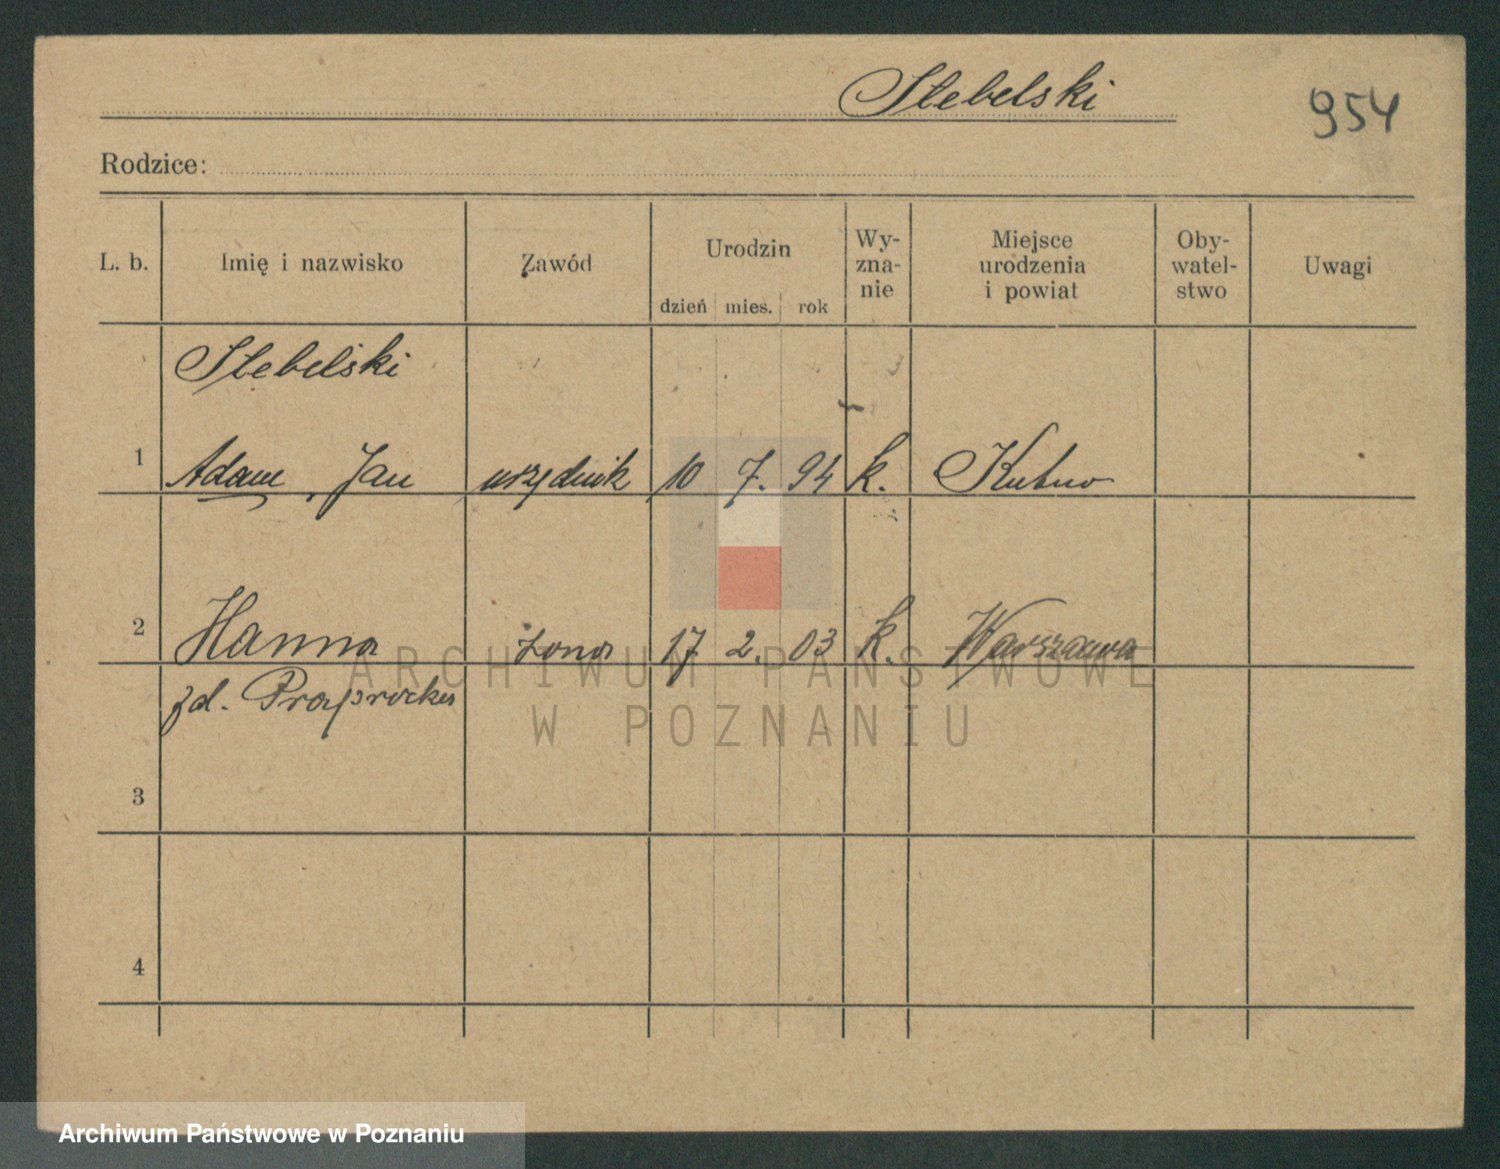 Stebelski
954
Rodzice:
L. b.
Imię i nazwisko
Zawód
Urodzin
dzień mies. rok
Wy-
zna-
nie
Miejsce
urodzenia
i powiat
Oby-
watel-
stwo
Uwagi
Stebelski
1 Adam, Jan urzędnik 10 7. 94 k. Kutno
2 Hanna żona 17 2. 03 k. Warszawa
zd.
3
4
ARCHIWUM PAŃSTWOWE
W POZNANIU
Archiwum Państwowe w Poznaniu